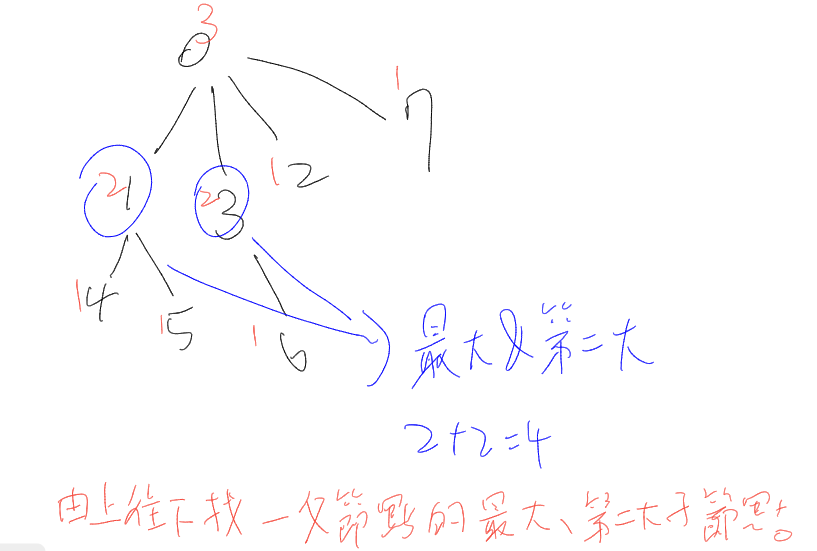 3
0
1 7
2 1 2 3 1 2
1 4 1 5 1 6
最大&第二大
2+2=4
由上往下找一父節點的最大、第二大子節點。